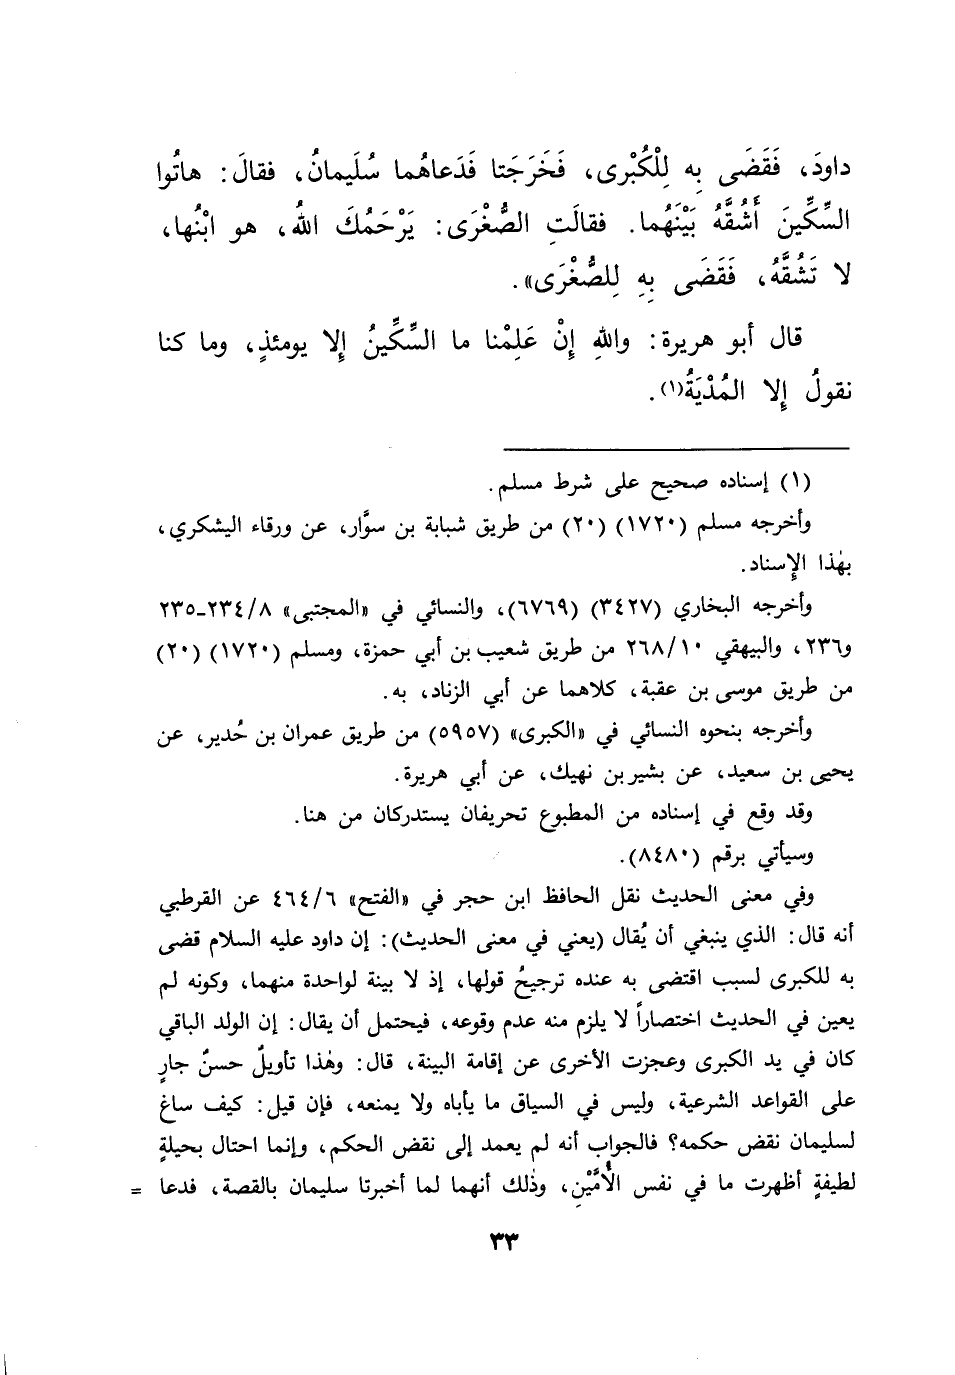 داودَ، فَقَضَى بِه لِلْكُبْرى، فَخَرَجَتا فَدَعاهُما سُلَيمانُ، فقالَ: هاتُوا
السِّكِّينَ أَشُقَّهُ بَيْنَهُما. فقالَتِ الصُّغْرَى: يَرْحَمُكَ اللهُ، هو ابْنُها،
لا تَشُقَّهُ، فَقَضَى بِهِ لِلصُّغْرَى».
قال أبو هريرة: واللهِ إِنْ عَلِمْنا ما السِّكِّينُ إِلا يومئذٍ، وما كنا
نقولُ إِلا المُدْيَةُ(١).
(١) إسناده صحيح على شرط مسلم.
وأخرجه مسلم (١٧٢٠) (٢٠) من طريق شبابة بن سوَّار، عن ورقاء اليشكري،
بهٰذا الإسناد.
وأخرجه البخاري (٣٤٢٧) (٦٧٦٩)، والنسائي في «المجتبى» ٢٣٤/٨-٢٣٥
و٢٣٦، والبيهقي ٢٦٨/١٠ من طريق شعيب بن أبي حمزة، ومسلم (١٧٢٠) (٢٠)
من طريق موسى بن عقبة، كلاهما عن أبي الزناد، به.
وأخرجه بنحوه النسائي في «الكبرى» (٥٩٥٧) من طريق عمران بن حُدير، عن
يحيى بن سعيد، عن بشير بن نهيك، عن أبي هريرة.
وقد وقع في إسناده من المطبوع تحريفان يستدركان من هنا.
وسيأتي برقم (٨٤٨٠).
وفي معنى الحديث نقل الحافظ ابن حجر في «الفتح» ٤٦٤/٦ عن القرطبي
أنه قال: الذي ينبغي أن يُقال (يعني في معنى الحديث): إن داود عليه السلام قضى
به للكبرى لسبب اقتضى به عنده ترجيحُ قولها، إذ لا بينة لواحدة منهما، وكونه لم
يعين في الحديث اختصاراً لا يلزم منه عدم وقوعه، فيحتمل أن يقال: إن الولد الباقي
كان في يد الكبرى وعجزت الأخرى عن إقامة البينة، قال: وهٰذا تأويلٌ حسنٌ جارٍ
على القواعد الشرعية، وليس في السياق ما يأباه ولا يمنعه، فإن قيل: كيف ساغ
لسليمان نقض حكمه؟ فالجواب أنه لم يعمد إلى نقض الحكم، وإنما احتال بحيلةٍ
لطيفةٍ أظهرت ما في نفس الأُمَّيْنِ، وذٰلك أنهما لما أخبرتا سليمان بالقصة، فدعا =
٣٣